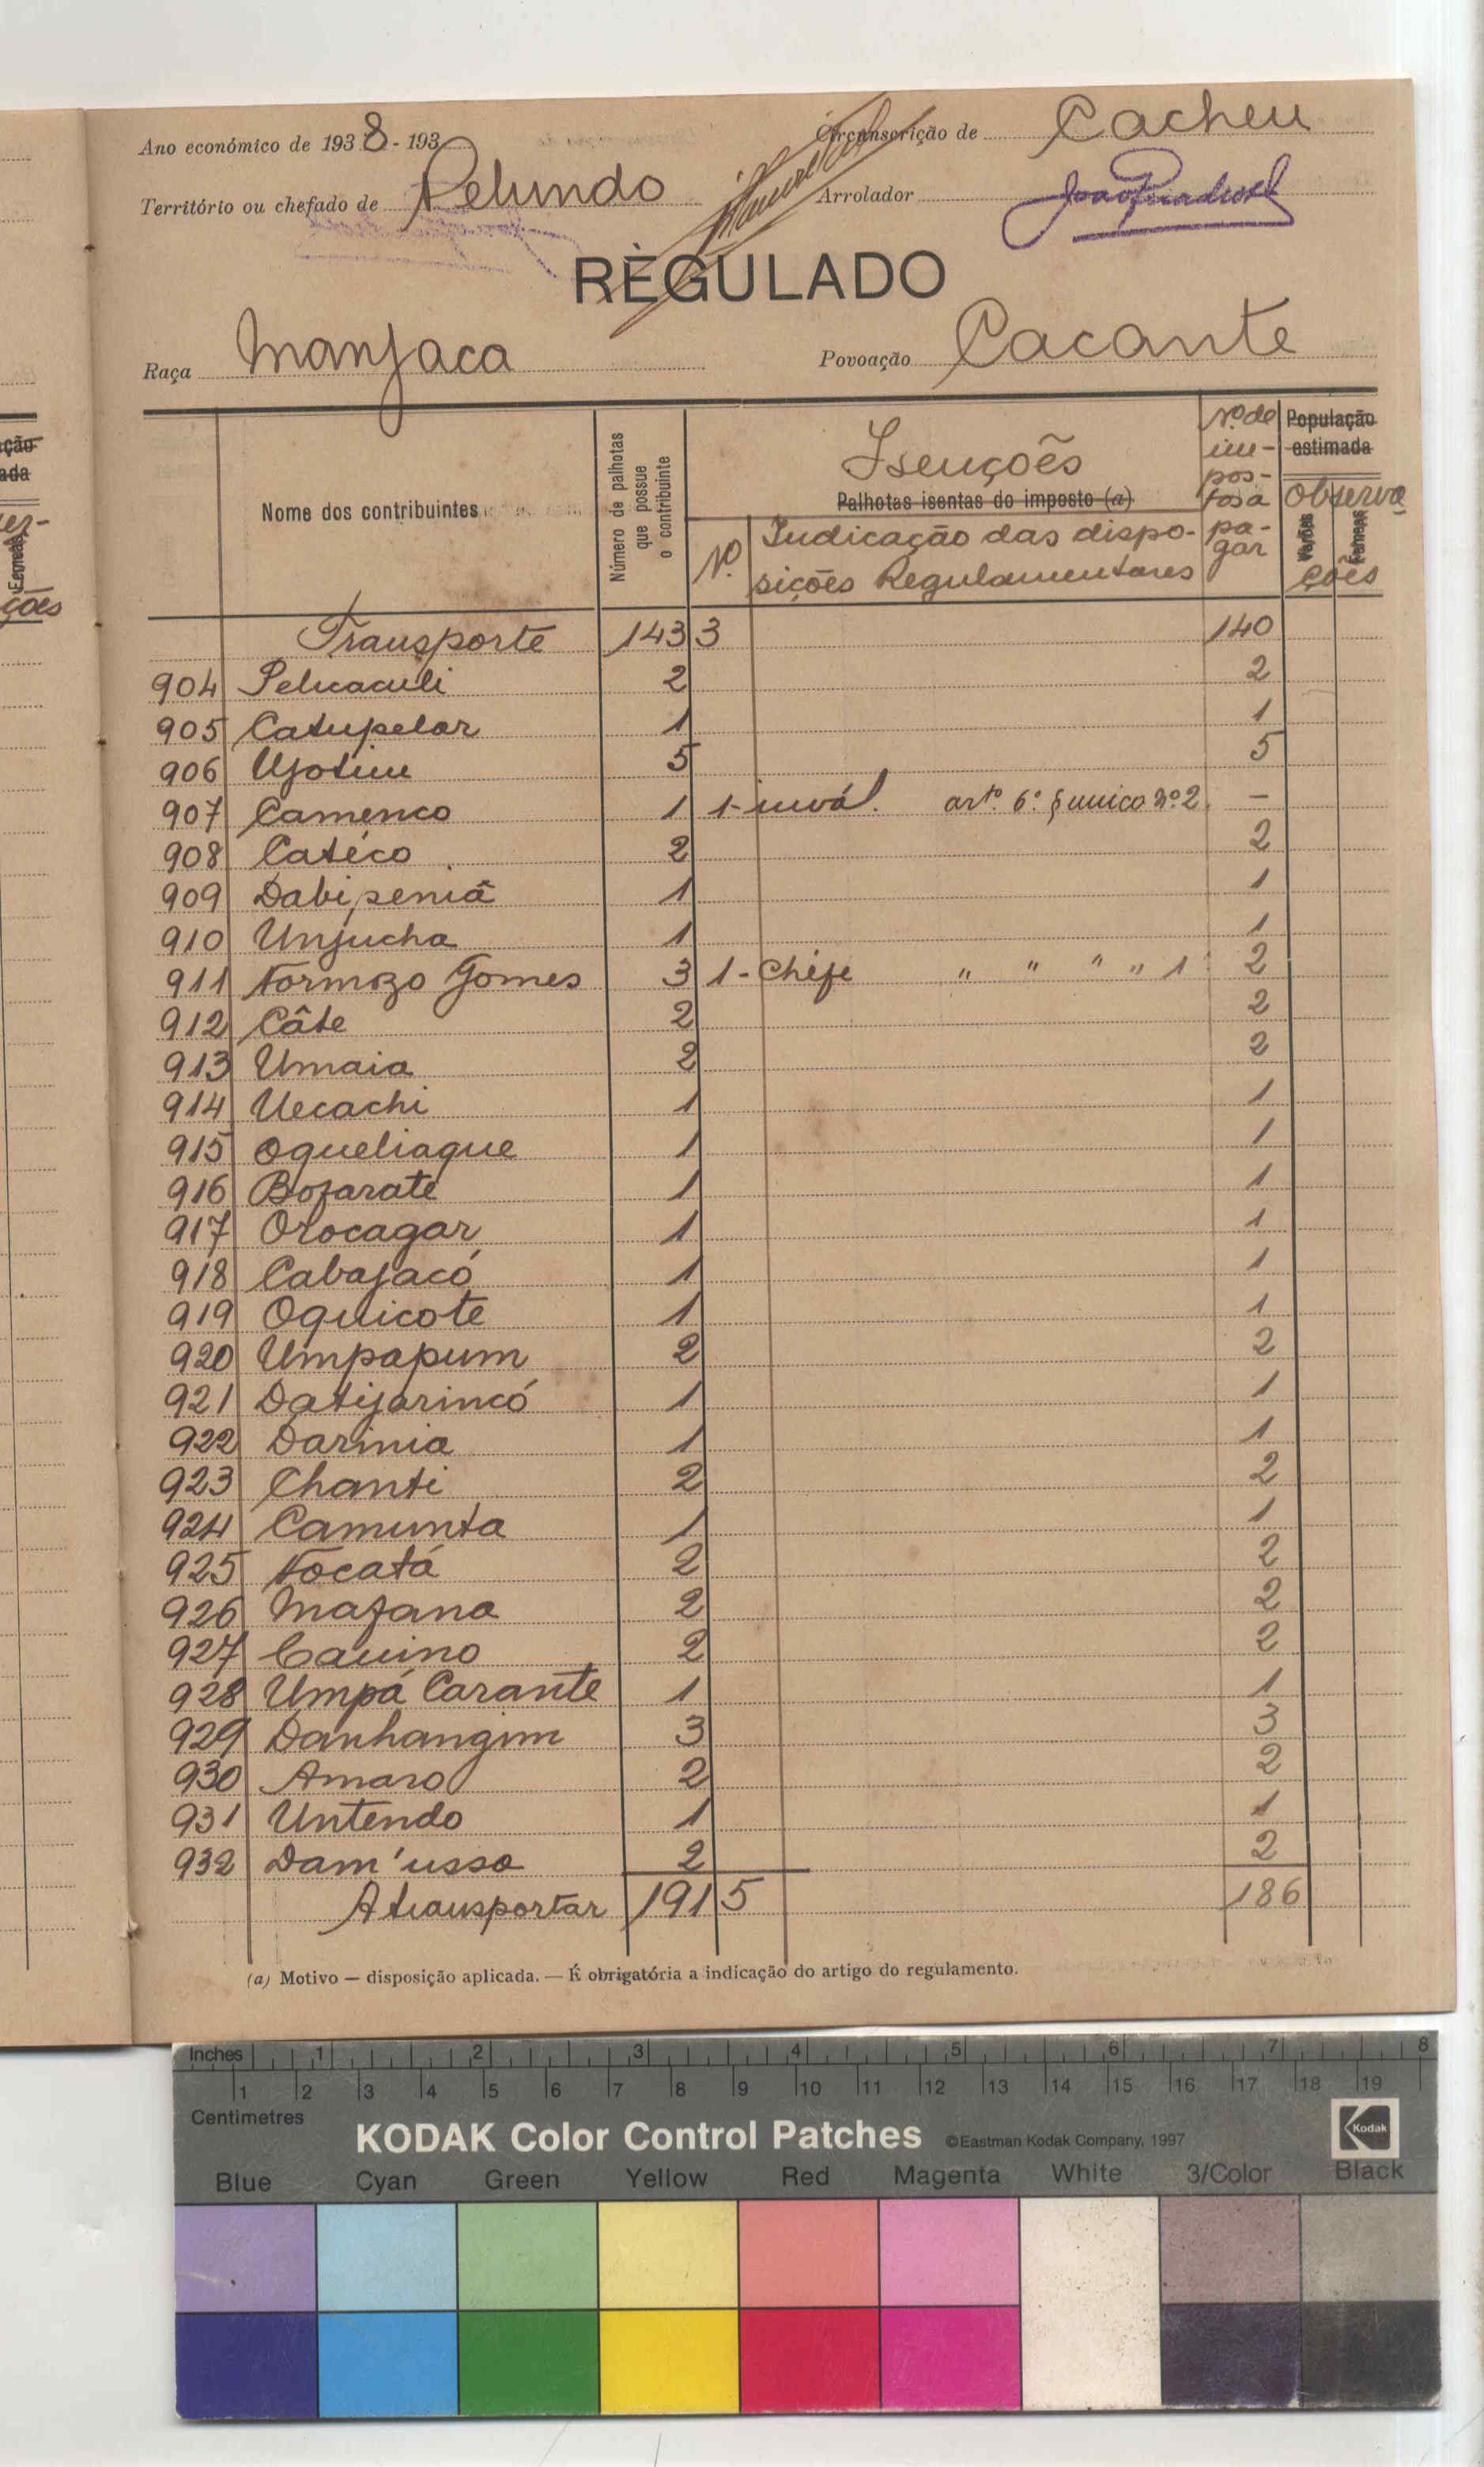 Ano económico de 1938-193
Circunscrição de Cacheu
Território ou chefado de Pelundo
Arrolador
REGULADO
Raça Manjaca
Povoação Cacante
Nome dos contribuintes
Número de palhotas que possue o contribuinte
Isenções
Palhotas isentas do imposto (a)
Nº
Indicação das dispo-
sições Regulamentares
Nº de im-pos-tos a pa-gar
População estimada
Observa-ções
Varões
Femeas
Transporte 143 3 140
904 Pelucaculi 2 2
905 Catupelar 1 1
906 Ujotim 5 5
907 Camenco 1 1-invál. artº. 6º. § unico nº 2. –
908 Catéco 2 2
909 Dabipeniã 1 1
910 Unjucha 1 1
911 Formozo Gomes 3 1-Chefe " " " " 1 2
912 Câte 2 2
913 Umaia 2 2
914 Uecachi 1 1
915 Oqueliaque 1 1
916 Bojarate 1 1
917 Orocagar 1 1
918 Cabajacó 1 1
919 Oquicote 1 1
920 Umpapum 2 2
921 Datijarincó 1 1
922 Darinia 1 1
923 Chanti 2 2
924 Camunta 1 1
925 Focatá 2 2
926 Mafana 2 2
927 Cauino 2 2
928 Umpá Carante 1 1
929 Danhangim 3 3
930 Amaro 2 2
931 Untendo 1 1
932 Dam'usso 2 2
A transportar 191 5 186
(a) Motivo — disposição aplicada. — É obrigatória a indicação do artigo do regulamento.
Inches 1 2 3 4 5 6 7 8
1 2 3 4 5 6 7 8 9 10 11 12 13 14 15 16 17 18 19
Centimetres
KODAK Color Control Patches ©Eastman Kodak Company, 1997 Kodak
Blue Cyan Green Yellow Red Magenta White 3/Color Black